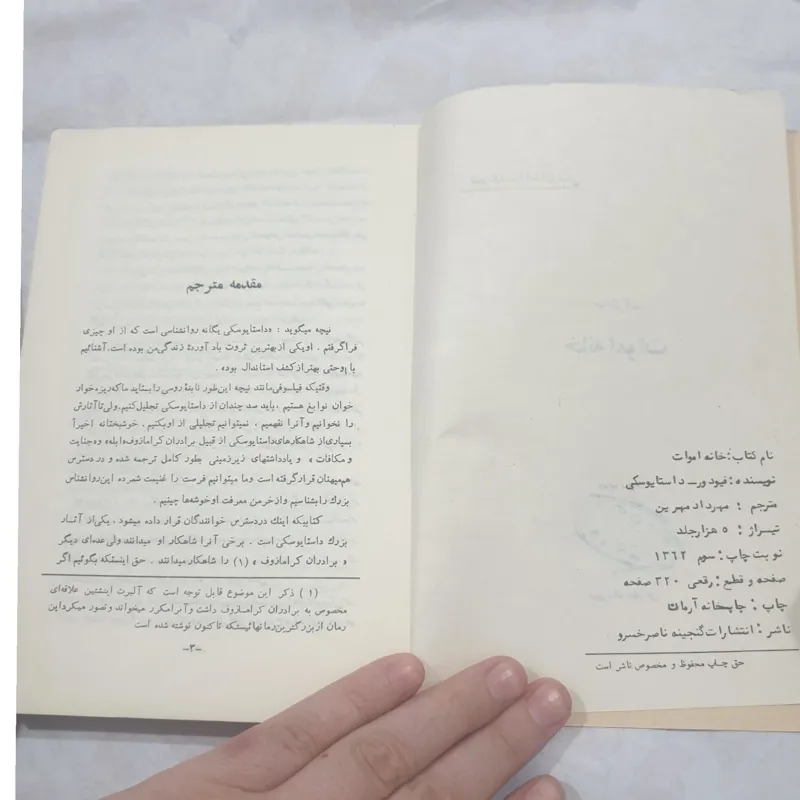 نام کتاب: خانه اموات
نویسنده: فیودور داستایوسکی
مترجم : مهرداد مهرین
تیراژ : ۵ هزار جلد
نوبت چاپ: سوم ۱۳۶۲
صفحه و قطع: رقعی ۳۲۰ صفحه
چاپ : چاپخانه آرمان
ناشر: انتشارات گنجینه ناصرخسرو
حق چاپ محفوظ و مخصوص ناشر است
مقدمه مترجم
نیچه میگوید : «داستایوسکی یگانه روانشناسی است که از او چیزی
فراگرفتم . او یکی از بهترین ثروت باد آورده زندگی من بوده است. آشنائیم
با وحتی بهتر از کشف استاندال بود» .
وقتیکه فیلسوفی مانند نیچه این‌طور نابغه روسی را بستاید ما که ریزه خوار
خوان نوابغ هستیم ، باید صد چندان از داستایوسکی تجلیل کنیم. ولی تا آثارش
را نخوانیم و آنرا نفهمیم ، نمیتوانیم تجلیلی از او بکنیم . خوشبختانه اخیراً
بسیاری از شاهکارهای داستایوسکی از قبیل برادران کرامازوف «ابله» و «جنایت
و مکافات » و یادداشتهای زیرزمینی بطور کامل ترجمه شده و در دسترس
هم‌میهنان قرار گرفته است وما میتوانیم فرصت را غنیمت شمرده این روانشناس
بزرگ را بشناسیم و از خرمن معرفت او خوشه‌ها چینیم .
کتابیکه اینک در دسترس خوانندگان قرار داده میشود ، یکی از آثار
بزرگ داستایوسکی است . برخی آنرا شاهکار او میدانند ولی عده‌ای دیگر
« برادران کرامازوف » (۱) را شاهکار میدانند . حق اینستکه بگوئیم اگر
(۱) ذکر این موضوع قابل توجه است که آلبرت اینشتین علاقه‌ای
مخصوص به برادران کرامازوف داشت و آنرا مکرر میخواند و تصور میکرد این
رمان از بزرگترین رمانهائیستکه تاکنون نوشته شده است
-۳-